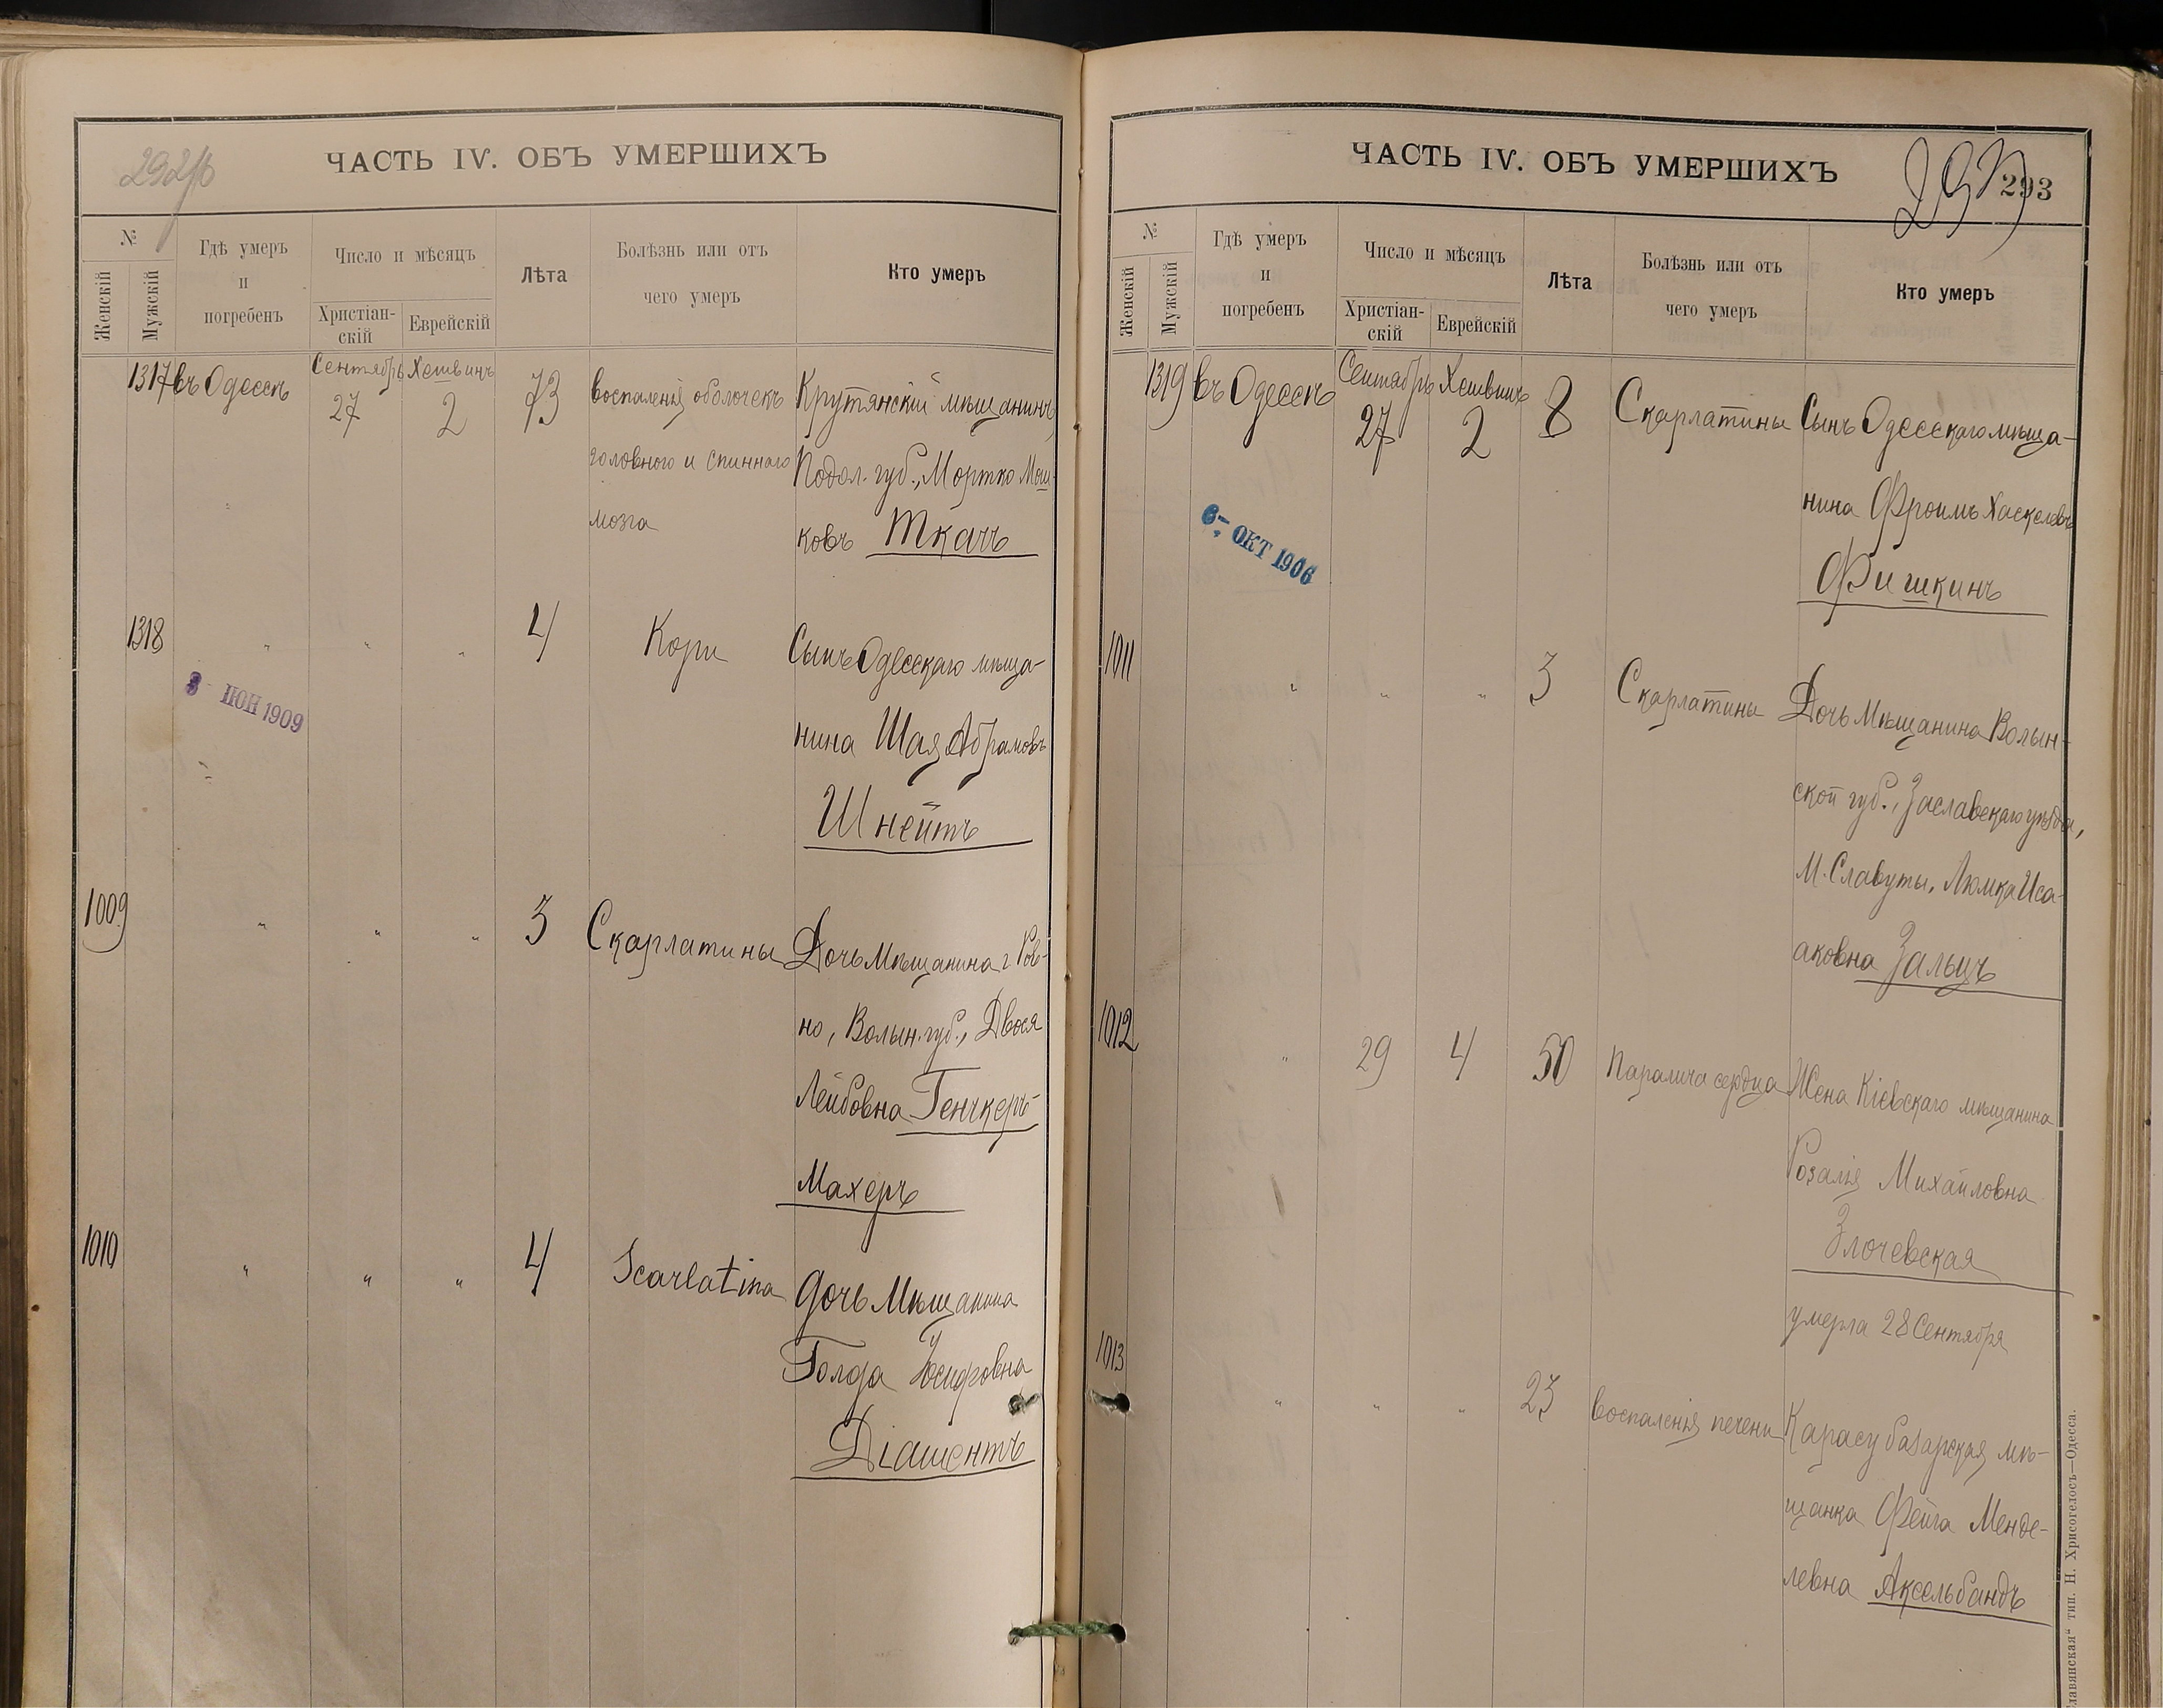 292/б
ЧАСТЬ IV. ОБЪ УМЕРШИХЪ
№
Женскій
Мужскій
Гдѣ умеръ
и
погребенъ
Число и мѣсяцъ
Христіан-
скій
Еврейскій
Лѣта
Болѣзнь или отъ
чего умеръ
Кто умеръ
1317 въ Одессѣ Сентябрь 27 Хешвинъ 2 73 воспаленія оболочекъ Крутянскій мѣщанинъ,
головного и спиннаго Подол. губ., Мортко Мош-
мозга ковъ Ткачъ
1318 " " " 4 Кори Сынъ Одесскаго мѣща-
нина Шая Абрамовъ
Шнейтъ
3- ІЮН 1909
1009 " " " 3 Скарлатины Дочь Мѣщанина г. Ров-
но, Волын. губ., Двося
Лейбовна Генчкеръ-
Махеръ
1010 " " " 4 Scarlatina Дочь Мѣщанина
Голда Юсифовна
Діаментъ
ЧАСТЬ IV. ОБЪ УМЕРШИХЪ
293
293
№
Женскій
Мужскій
Гдѣ умеръ
и
погребенъ
Число и мѣсяцъ
Христіан-
скій
Еврейскій
Лѣта
Болѣзнь или отъ
чего умеръ
Кто умеръ
1319 въ Одессѣ Сентябрь 27 Хешвинъ 2 8 Скарлатины Сынъ Одесскаго мѣща-
нина Фроимъ Хаскелевъ
Фишкинъ
6- ОКТ 1906
1011 " " " 3 Скарлатины Дочь Мѣщанина Волын-
ской губ., Заславскаго уѣзда,
М. Славуты, Люмка Иса-
аковна Зальцъ
1012 " 29 4 50 Паралича сердца Жена Кіевскаго мѣщанина
Розалія Михайловна
Злочевская
умерла 28 Сентября
1013 " " " 23 воспаленія печени Карасубазарская мѣ-
щанка Фейга Менде-
левна Аксельбандъ
славянская" тип. Н. Хрисогелосъ—Одесса.